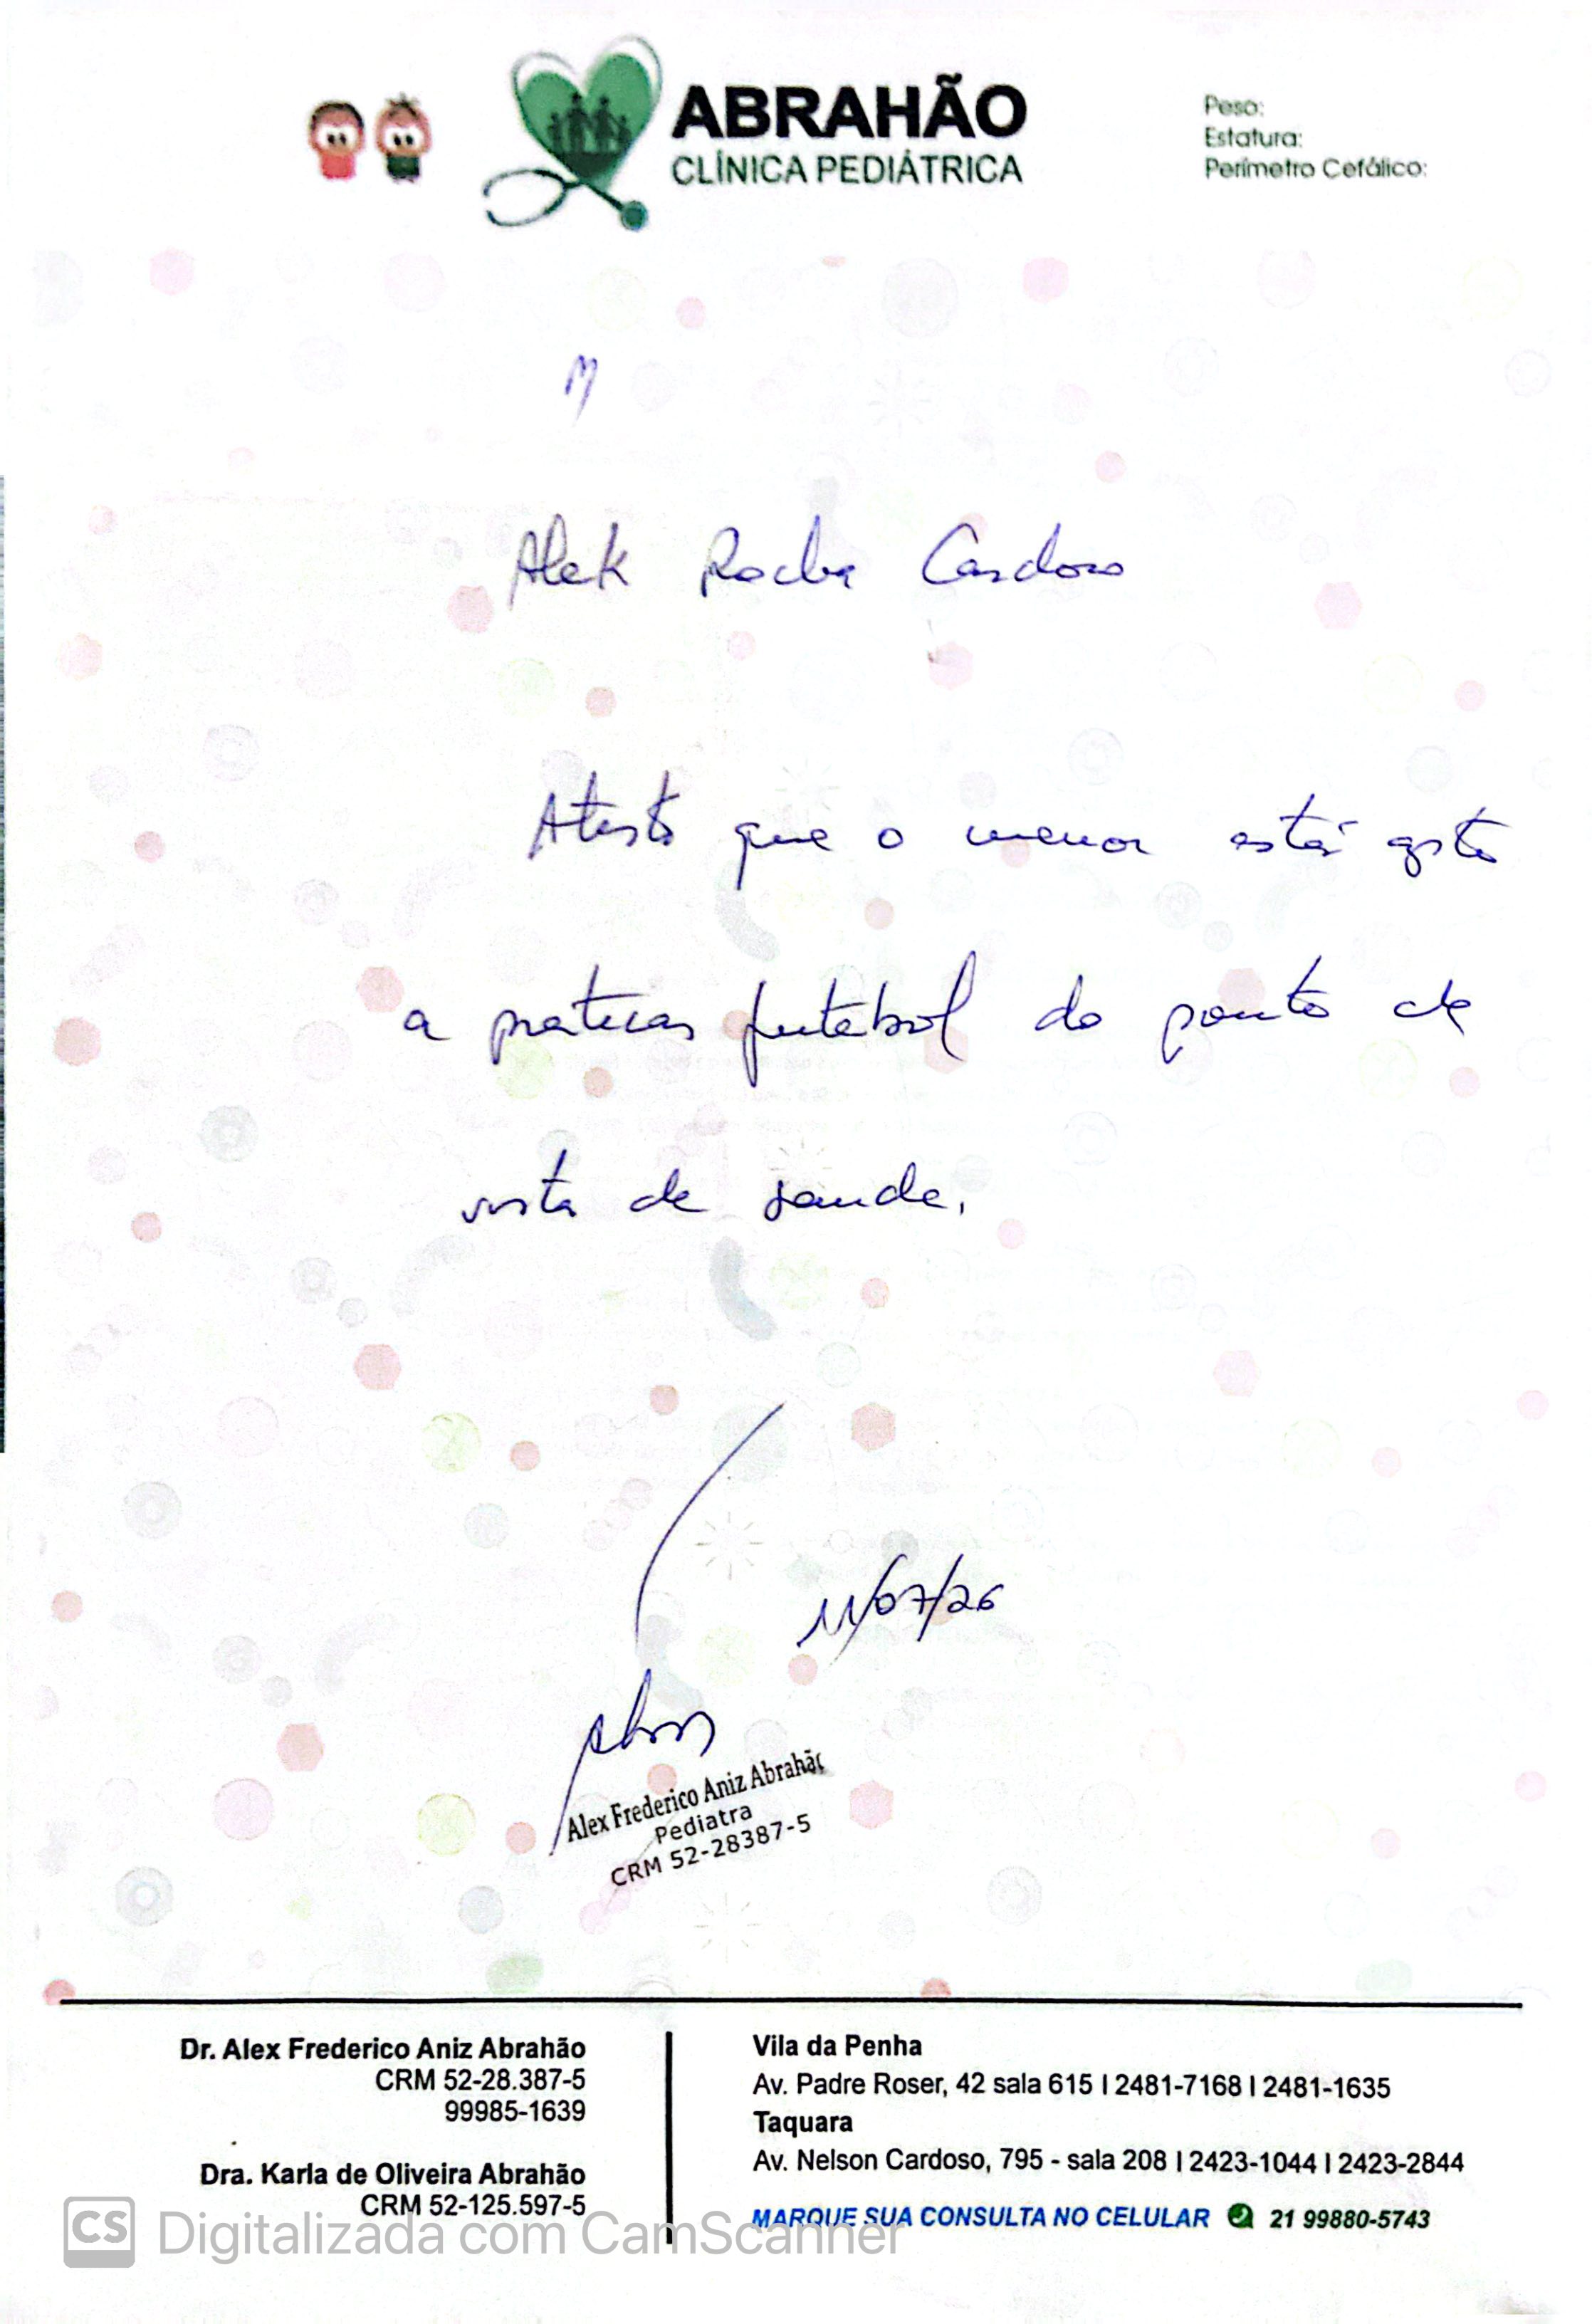 ABRAHÃO
CLÍNICA PEDIÁTRICA
Peso:
Estatura:
Perímetro Cefálico:
Alek Rocha Cardoso
Atesto que o menor está apto
a praticar futebol do ponto de
vista de saude.
11/07/26
Alex Frederico Aniz Abrahão
Pediatra
CRM 52-28387-5
Dr. Alex Frederico Aniz Abrahão
CRM 52-28.387-5
99985-1639
Dra. Karla de Oliveira Abrahão
CRM 52-125.597-5
Vila da Penha
Av. Padre Roser, 42 sala 615 | 2481-7168 | 2481-1635
Taquara
Av. Nelson Cardoso, 795 - sala 208 | 2423-1044 | 2423-2844
MARQUE SUA CONSULTA NO CELULAR 21 99880-5743
CS Digitalizada com CamScanner